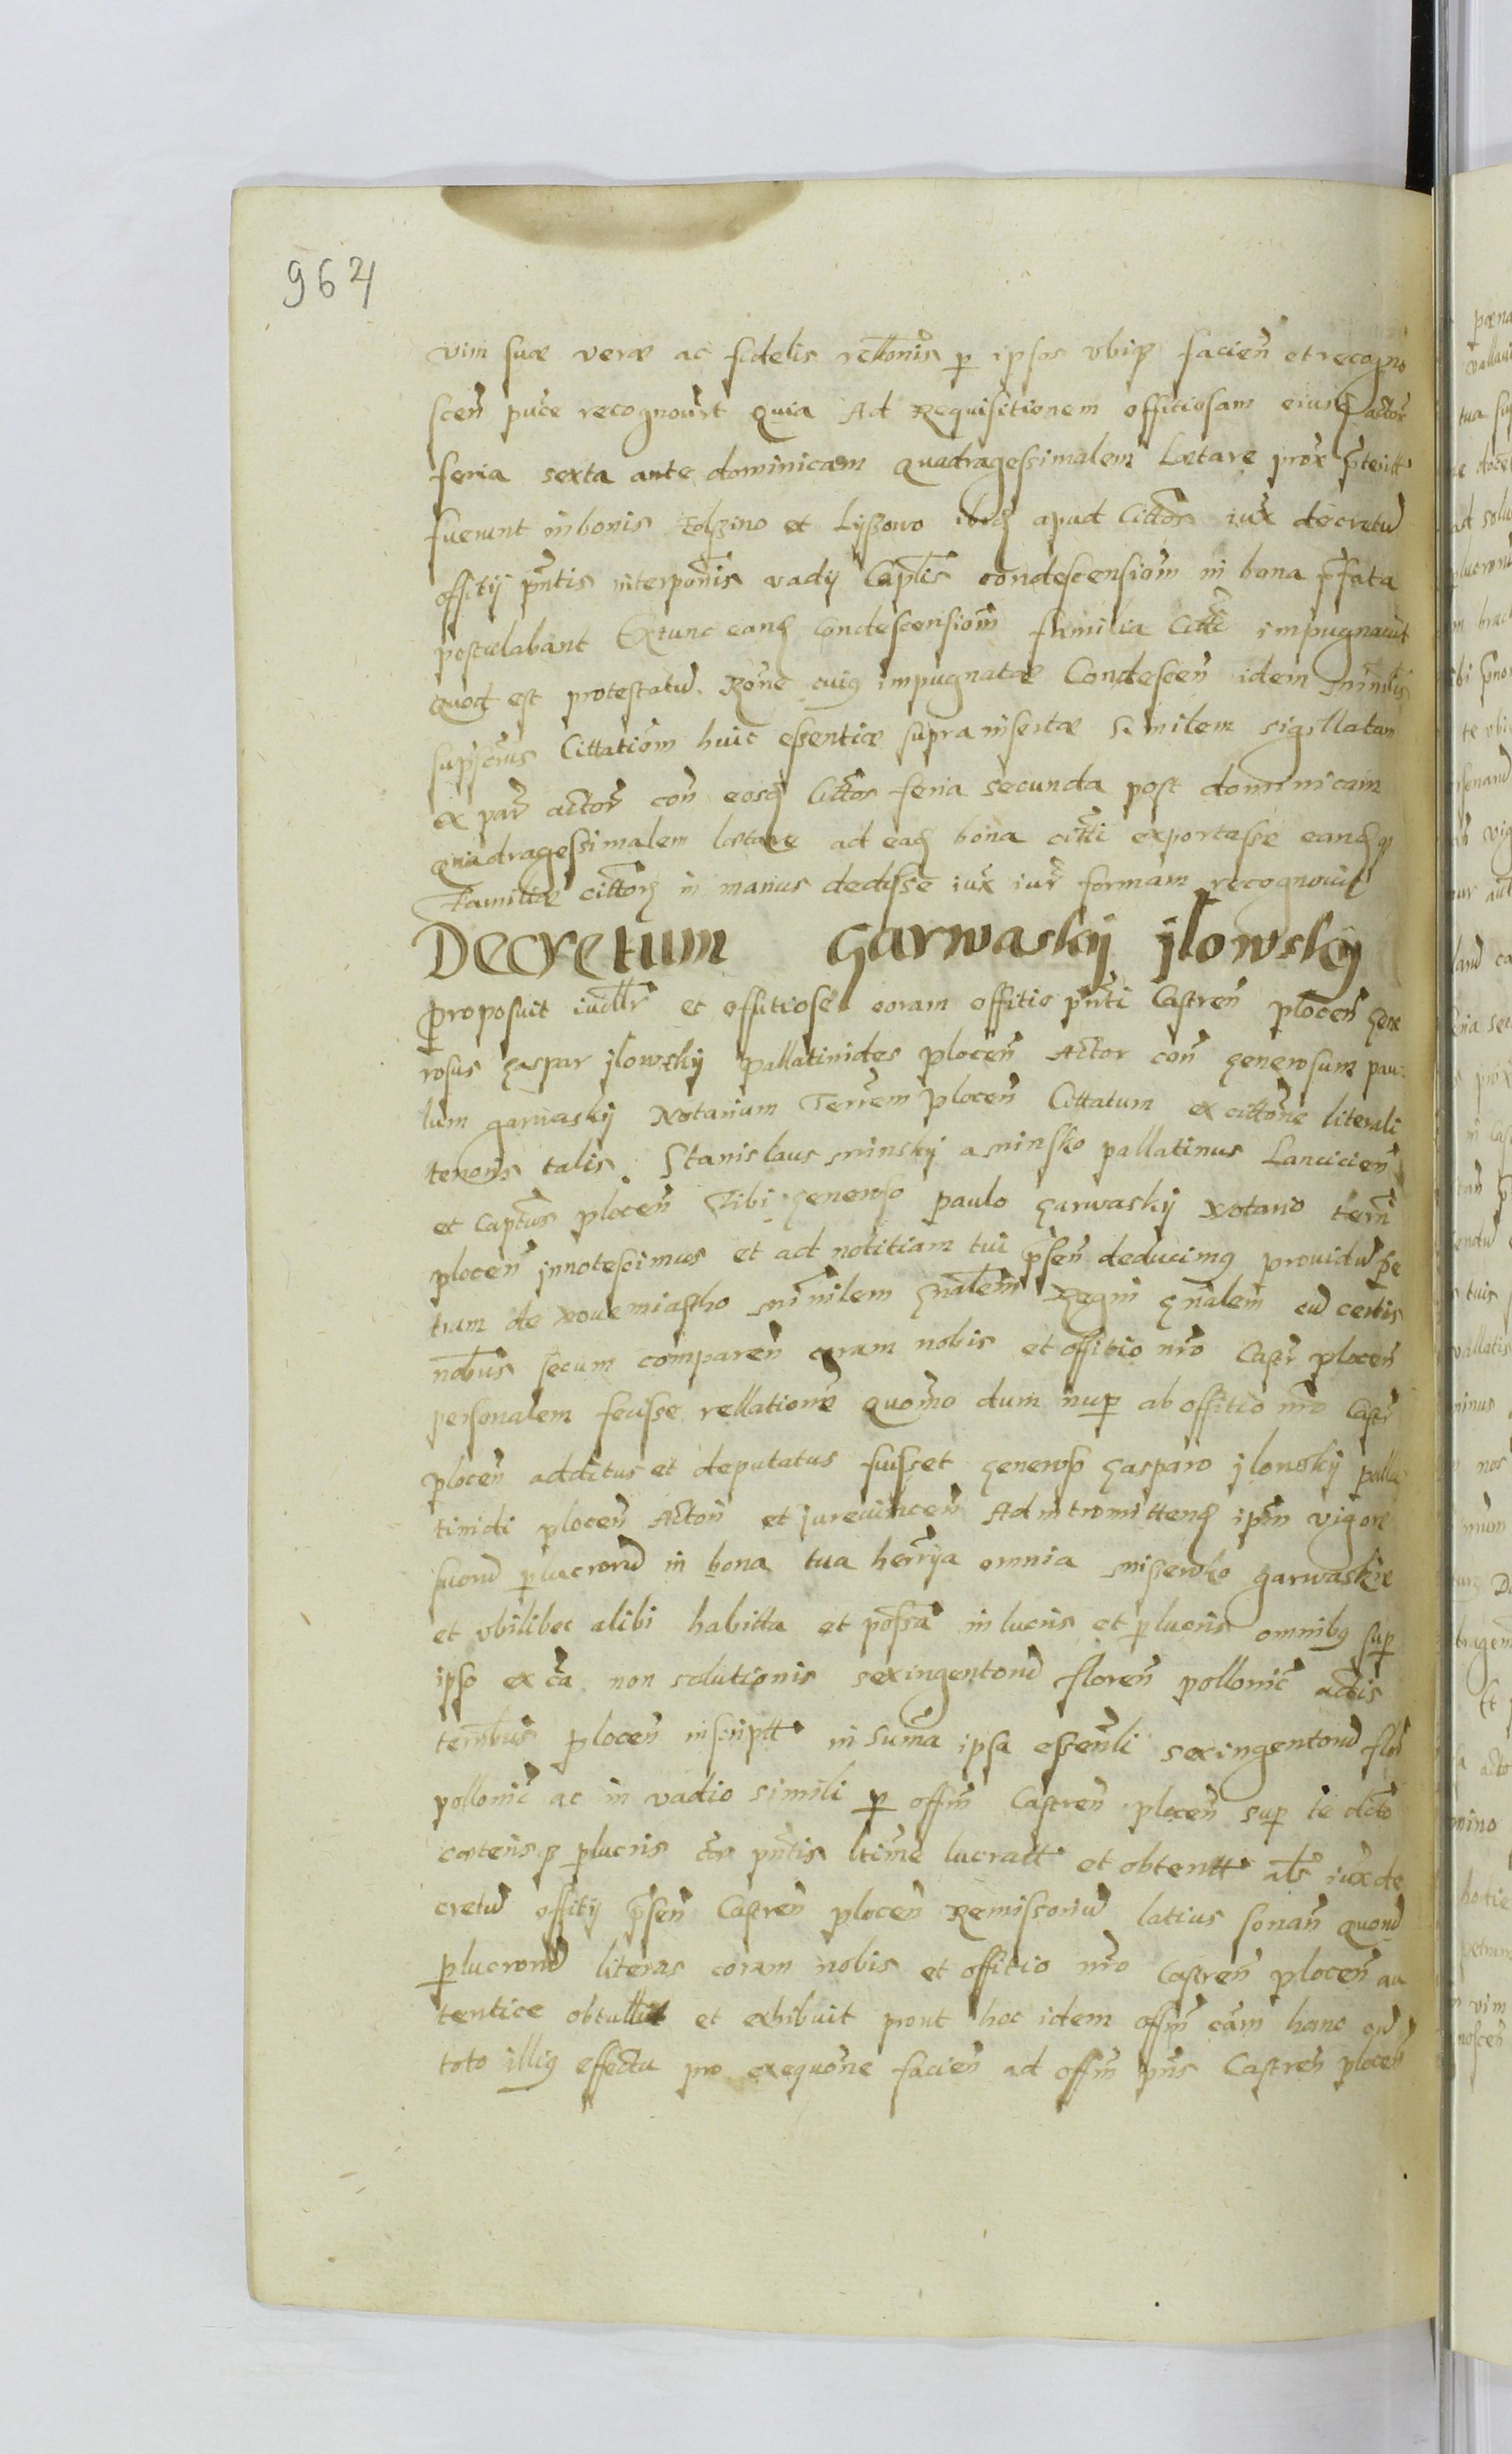 964
vim suæ veræ ac fidelis rellonis p ipsos vbiq facien et recogno
scen puce recognourt quia Ad Requisitionem offitiosam eiusd actor
feria sexta ante dominicam quadragessimalem Lætare prox pterit
fuerunt in bonis Folzino et Lyssowo ibid apud Cittos iux decretu
offitij pntis interponis vadij Caplis condescensiom in bona pfata
postulabant Extunc eand Condescensiom familia Citti impugnauit
quod est protestatu Rone cuig impugnatæ Condescen idem mnilis
supscrus Cittatiom huic essentiæ supra insertæ similem sigillatam
ex par actor con eosd Cittos feria secunda post dominicam
quadragessimalem lætare ad ead bona citti exportasse eandq
Familiæ cittor in manus dedisse iux iur formam recognouit
Decretum Garwaskij jlowskij
proposuit iudlr et offitiose coram offitio pnti Castren plocen Gene
rosus Gaspar jlowskij pallatinides plocen Actor con Generosum pau
lum garwaskij Notarium Terrem plocen Cittatum ex cittone literali
tenoris talis Stanislaus minskij a minsko pallatinus Lancicien
et Captus plocen Tibi Generoso paulo Garwaskij Notario terri
plocen innotescimus et ad notitiam tui psen deducimg prouidu pe
trum de Nouemiastho mnilem Gnalem Regni Gnalem cu certis
nobus secum comparen coram nobis et offitio nro Castr plocen
personalem fecisse rellatione quomo dum nup ab offitio nro Castr
plocen additus et deputatus fuisset Generoso Gasparo jlowskij palla
tinidi plocen Actori et jurevincen Ad intromittend ipsm vigore
suoru plucroru in bona tua herrija omnia miszewko garwaskie
et vbilibet alibi habitta et possa in lucris et plucris omnibg sup
ipso ex ca non solutionis sexingentoru floren pollonic actis
terribus plocen inscriptt in suma ipsa essenli sexingentoru flor
pollonic ac in vadio simili p offm Castren plocen sup te dicto
cæterisq plucris cor pntis ltime lucratt et obtentt als iux de
cretu offitij psen Castren plocen Remissoriu latius sonan quoru
plucroru literas coram nobis et offitio nro Castren plocen au
tentice obtullit et exhibuit prout hoc idem offm cam hanc cu
toto illig effectu pro exequone facien ad offm pns Castren plocen